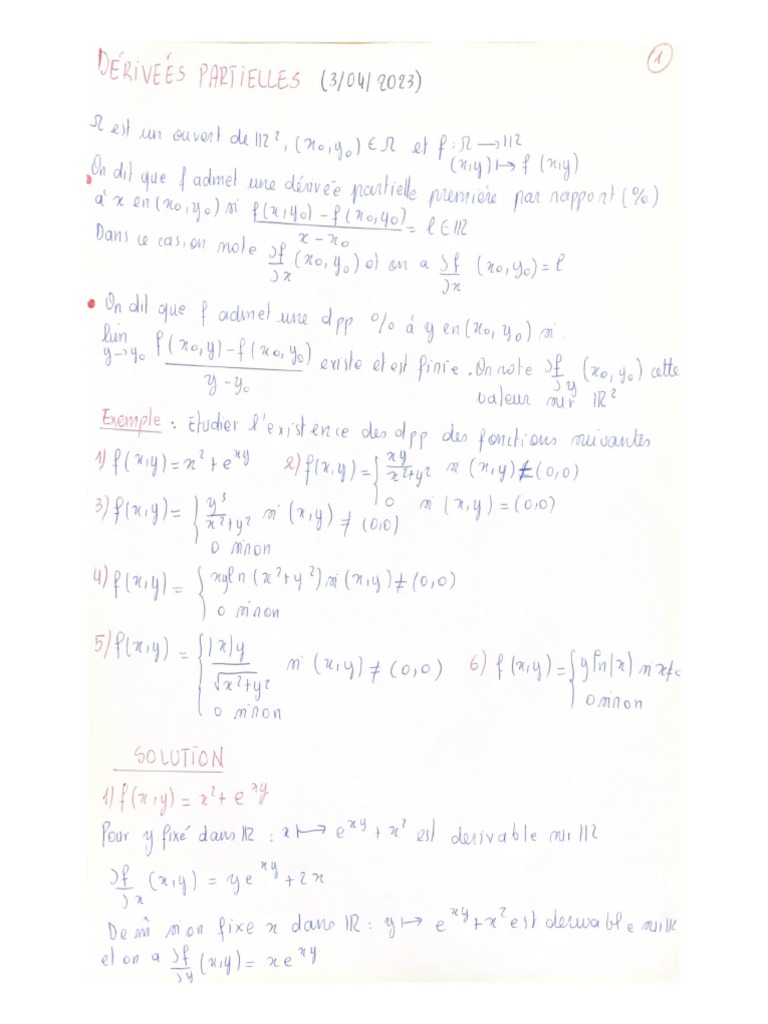 1
DÉRIVEÉS PARTIELLES (3/04/2023)
Ω est un ouvert de IR², (x₀,y₀) ∈ Ω et f : Ω → IR
(x,y) ↦ f(x,y)
• On dit que f admet une dérivée partielle première par rapport (%)
à x en (x₀,y₀) si f(x,y₀) - f(x₀,y₀) / x - x₀ = l ∈ IR
Dans ce cas, on note ∂f/∂x (x₀,y₀) et on a ∂f/∂x (x₀,y₀) = l
• On dit que f admet une dpp % à y en (x₀,y₀) si
lim y→y₀ f(x₀,y) - f(x₀,y₀) / y - y₀ existe et est finie. On note ∂f/∂y (x₀,y₀) cette
valeur sur IR²
Exemple : Etudier l'existence des dpp des fonctions suivantes
1) f(x,y) = x² + e^xy 2) f(x,y) = { xy / x²+y² si (x,y) ≠ (0,0)
0 si (x,y) = (0,0)
3) f(x,y) = { y³ / x²+y² si (x,y) ≠ (0,0)
0 sinon
4) f(x,y) = { xy ln(x²+y²) si (x,y) ≠ (0,0)
0 sinon
5) f(x,y) = { |x|y / √x²+y² si (x,y) ≠ (0,0) 6) f(x,y) = { y ln|x| si x≠0
0 sinon 0 sinon
SOLUTION
1) f(x,y) = x² + e^xy
Pour y fixé dans IR : x ↦ e^xy + x² est derivable sur IR
∂f/∂x (x,y) = ye^xy + 2x
De m̂ si on fixe x dans IR : y ↦ e^xy + x² est derivable sur IR
et on a ∂f/∂y (x,y) = xe^xy